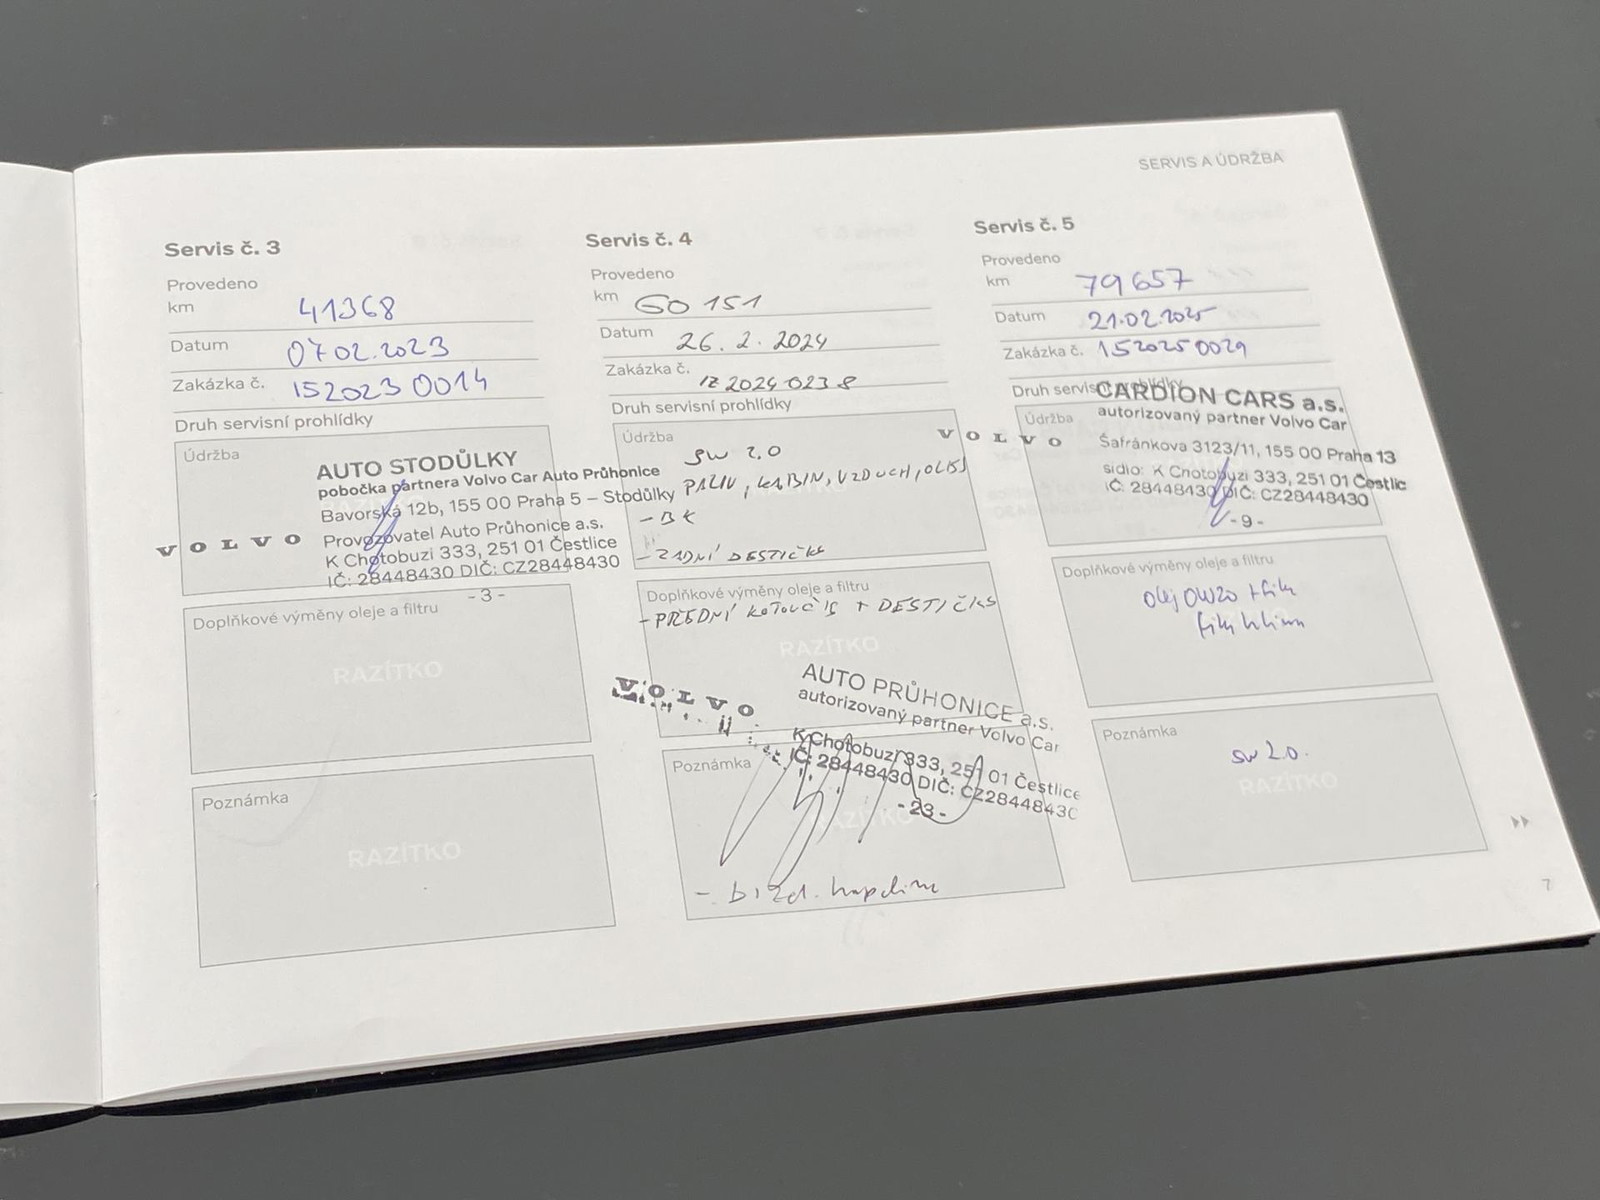 SERVIS A ÚDRŽBA
Servis č. 3
Provedeno
km 41368
Datum 07 02.2023
Zakázka č. 152023 0014
Druh servisní prohlídky
Údržba
AUTO STODŮLKY
pobočka partnera Volvo Car Auto Průhonice
Bavorská 12b, 155 00 Praha 5 – Stodůlky
VOLVO Provozovatel Auto Průhonice a.s.
K Chotobuzi 333, 251 01 Čestlice
IČ: 28448430 DIČ: CZ28448430
- 3 -
Doplňkové výměny oleje a filtru
RAZÍTKO
Poznámka
RAZÍTKO
Servis č. 4
Provedeno
km 60 151
Datum 26. 2. 2024
Zakázka č. 12 2024 0238
Druh servisní prohlídky
Údržba
SW 2.0
PALIV, KABIN, VZDUCH, OLEJ
- BK
- ZADNÍ DESTIČKY
Doplňkové výměny oleje a filtru
- PŘEDNÍ KOTOUČE + DESTIČKY
RAZÍTKO
VOLVO AUTO PRŮHONICE a.s.
autorizovaný partner Volvo Car
K Chotobuzi 333, 251 01 Čestlice
IČ: 28448430 DIČ: CZ28448430
- 23 -
Poznámka
RAZÍTKO
Servis č. 5
Provedeno
km 79657
Datum 21.02.2025
Zakázka č. 152025 0029
Druh servisní prohlídky
CARDION CARS a.s.
Údržba
autorizovaný partner Volvo Car
VOLVO Šafránkova 3123/11, 155 00 Praha 13
sídlo: K Chotobuzi 333, 251 01 Čestlic
IČ: 28448430 DIČ: CZ28448430
- 9 -
Doplňkové výměny oleje a filtru
olej 0W20 + filtr
Poznámka
SW 2.0.
RAZÍTKO
7